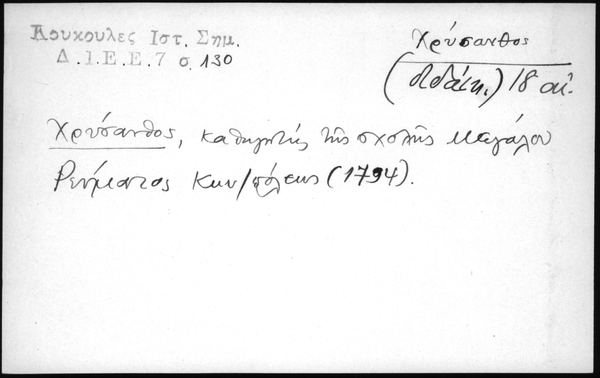 Λουκουλες Ιστ. Σημ.
Δ.Ι.Ε.Ε.7 σ. 130
Χρύσανθος
(διδάσκ.) 18 αἰ.
Χρύσανθος, καθηγητής τῆς σχολῆς Μεγάλου
Ρεύματος Κων/πόλεως (1794).